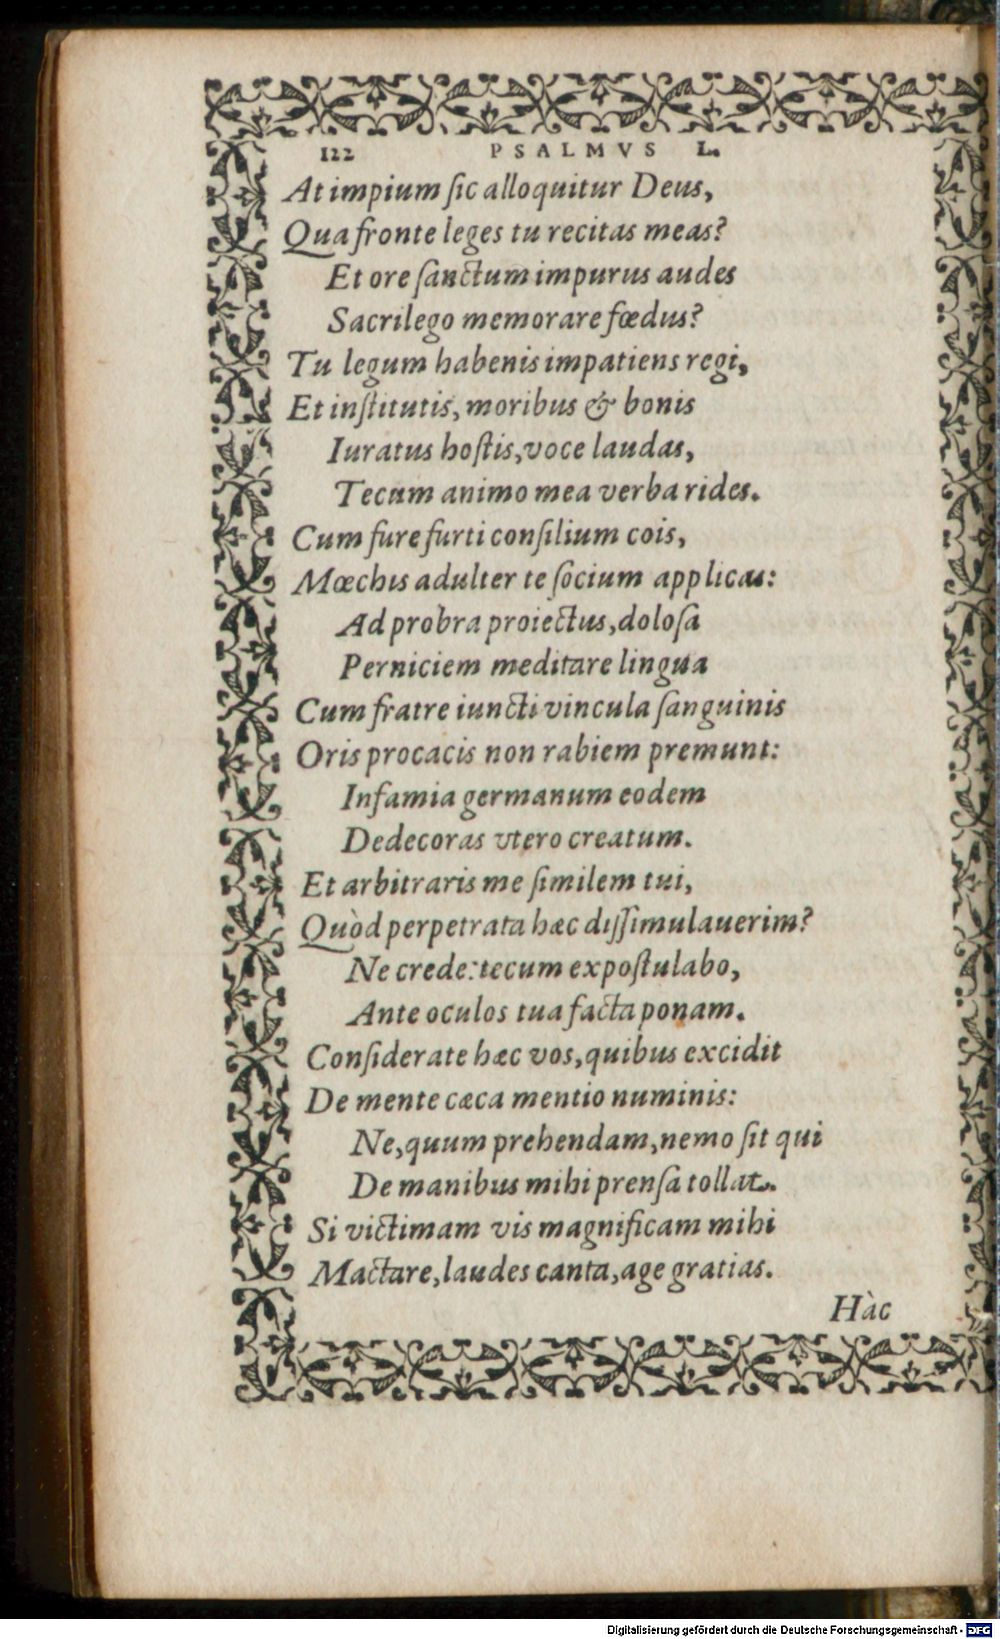 122 PSALMVS L.
At impium ſic alloquitur Deus,
Qua fronte leges tu recitas meas?
Et ore ſanctum impurus audes
Sacrilego memorare fœdus?
Tu legum habenis impatiens regi,
Et inſtitutis, moribus & bonis
Iuratus hoſtis, voce laudas,
Tecum animo mea verba rides.
Cum fure furti conſilium cois,
Mœchis adulter te ſocium applicas:
Ad probra proiectus, doloſa
Perniciem meditare lingua
Cum fratre iuncti vincula ſanguinis
Oris procacis non rabiem premunt:
Infamia germanum eodem
Dedecoras vtero creatum.
Et arbitraris me ſimilem tui,
Quòd perpetrata hæc diſſimulauerim?
Ne crede: tecum expoſtulabo,
Ante oculos tua facta ponam.
Conſiderate hæc vos, quibus excidit
De mente cæca mentio numinis:
Ne, quum prehendam, nemo ſit qui
De manibus mihi prenſa tollat.
Si victimam vis magnificam mihi
Mactare, laudes canta, age gratias.
Hàc
Digitalisierung gefördert durch die Deutsche Forschungsgemeinschaft - DFG